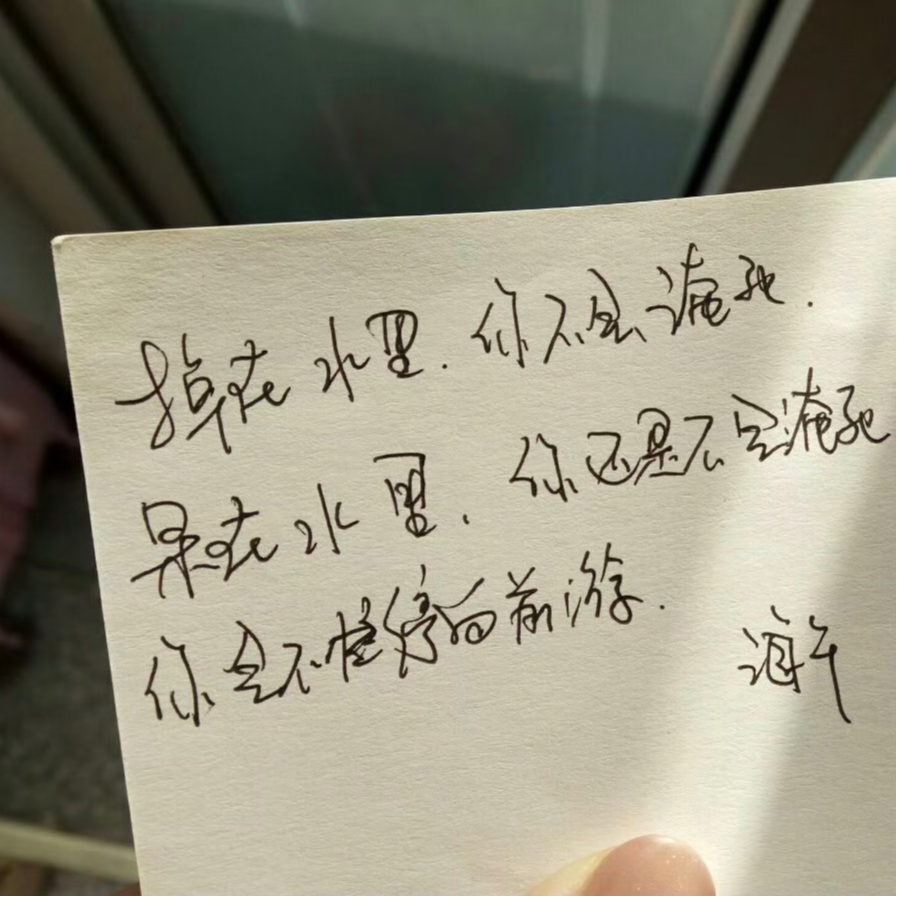 掉在水里.你不会淹死.
呆在水里.你还是不会淹死
你会不停向前游.